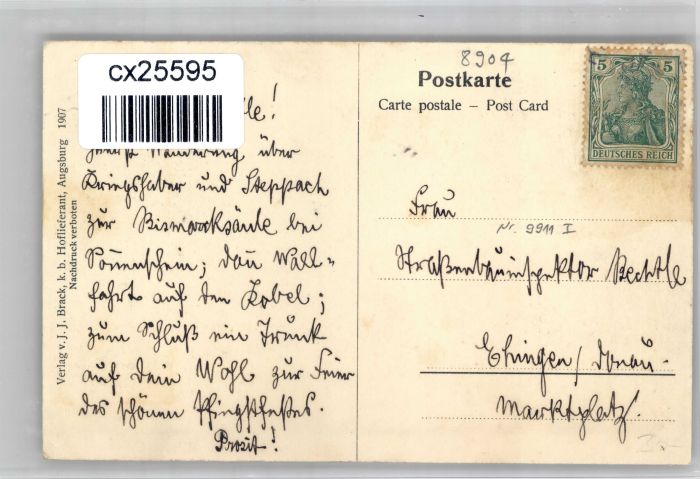 cx25595
8904
Postkarte
Carte postale – Post Card
5 5
DEUTSCHES REICH
Verlag v. J. J. Brack, k. b. Hoflieferant, Augsburg 1907
Nachdruck verboten
Wanderung über
Kriegshaber und Steppach
zur Bismarcksäule bei
Sonnenschein; dann Wall-
fahrt auf den Kobel;
zum Schluß ein Trunk
auf Dein Wohl zur Feier
des schönen Pfingstfestes.
Prosit!
Frau
Nr. 9911 I
Straßenbauinspektor Bechtle
Ehingen/Donau.
Marktplatz.